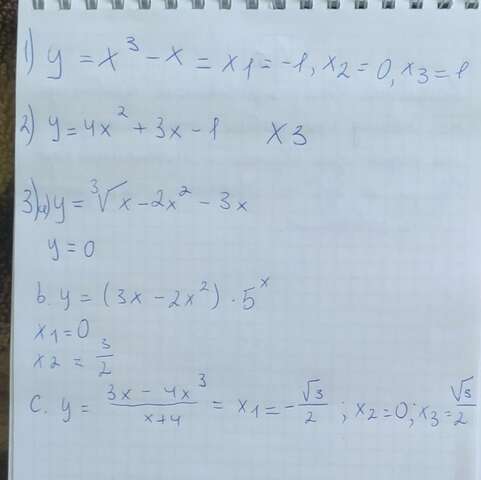 1) y = x³ - x = x1 = -1, x2 = 0, x3 = 1
2) y = 4x² + 3x - 1 x3
3) a) y = ³√x - 2x² - 3x
y = 0
b. y = (3x - 2x²) · 5ˣ
x1 = 0
x2 = 3/2
c. y = (3x - 4x³)/(x+4) = x1 = -√3/2 ; x2 = 0; x3 = √3/2